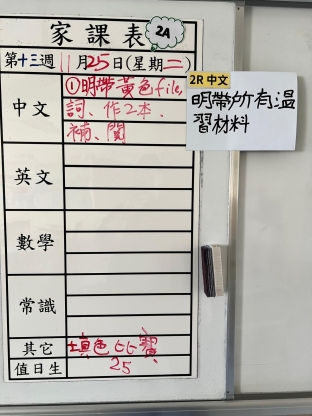 家課表 2A
第十三週 11月25日(星期二)
中文
①明帶黃色file,
詞、作2本、
補、閱
英文
數學
常識
其它 填色比賽、
值日生 25
2R 中文
明帶所有溫
習材料